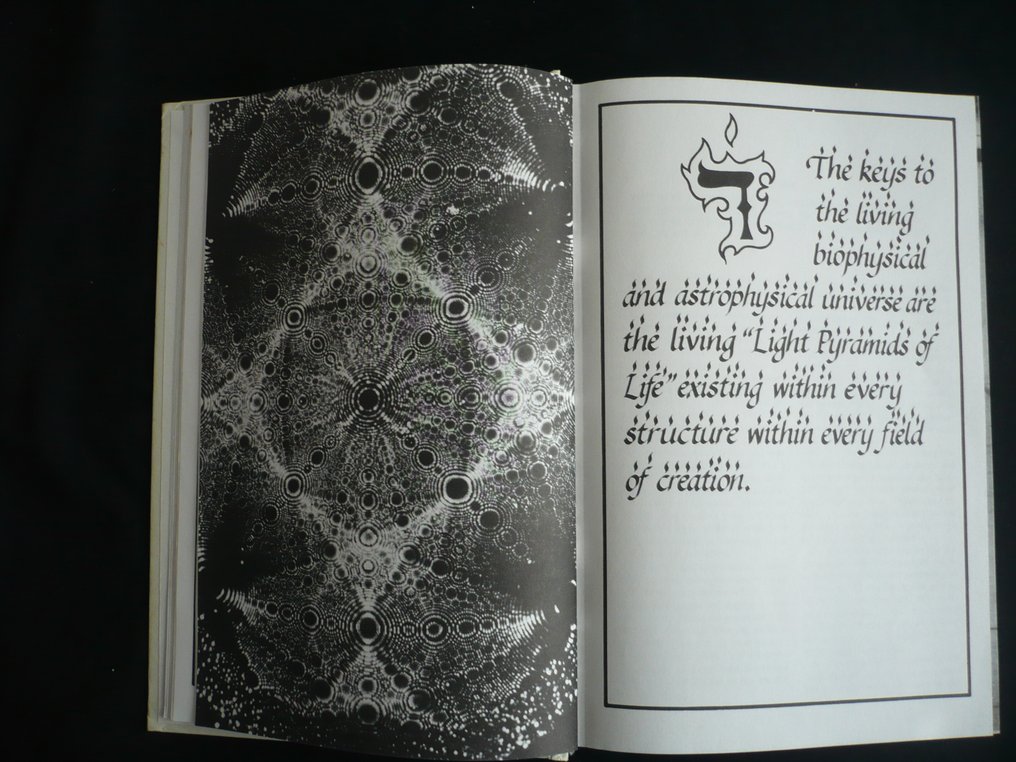 ד The keys to
the living
biophysical
and astrophysical universe are
the living “Light Pyramids of
Life” existing within every
structure within every field
of creation.